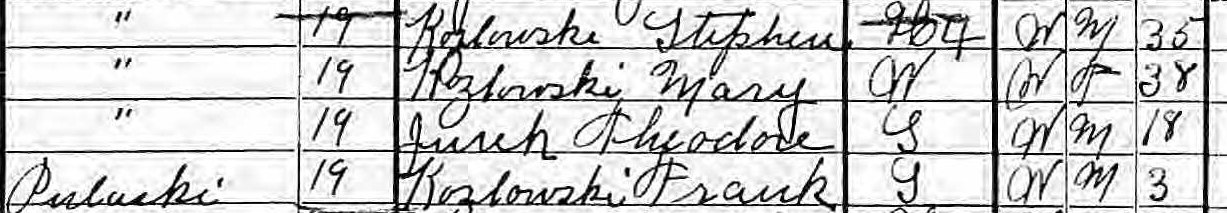 " 19 Kozlowski Stephen W M 35
" 19 Kozlowski Mary W W F 38
" 19 Jurek Theodore S W M 18
Pulaski 19 Kozlowski Frank S W M 3